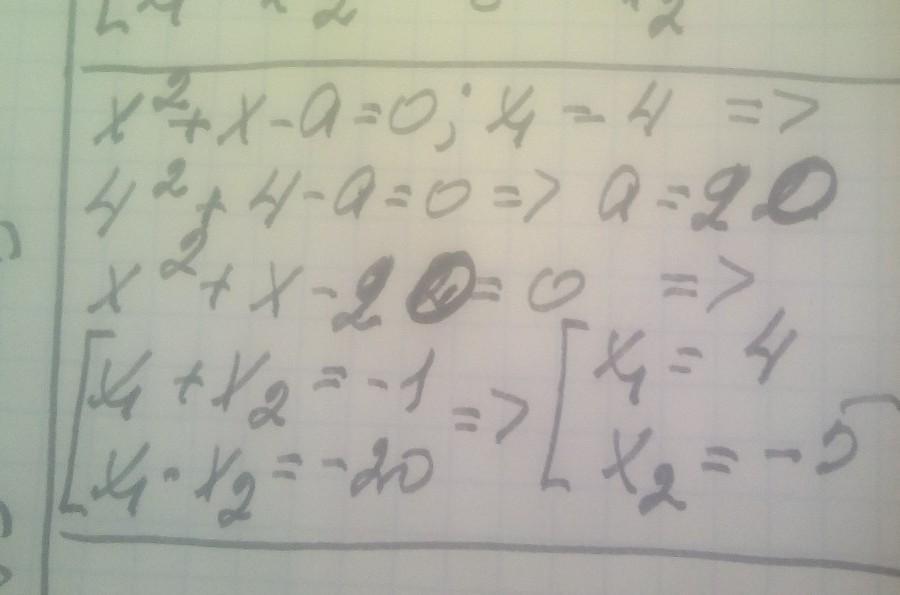 x² + x - a = 0; x₁ = 4 =>
4² + 4 - a = 0 => a = 20
x² + x - 20 = 0 =>
[ x₁ + x₂ = -1 => [ x₁ = 4
x₁ · x₂ = -20 x₂ = -5